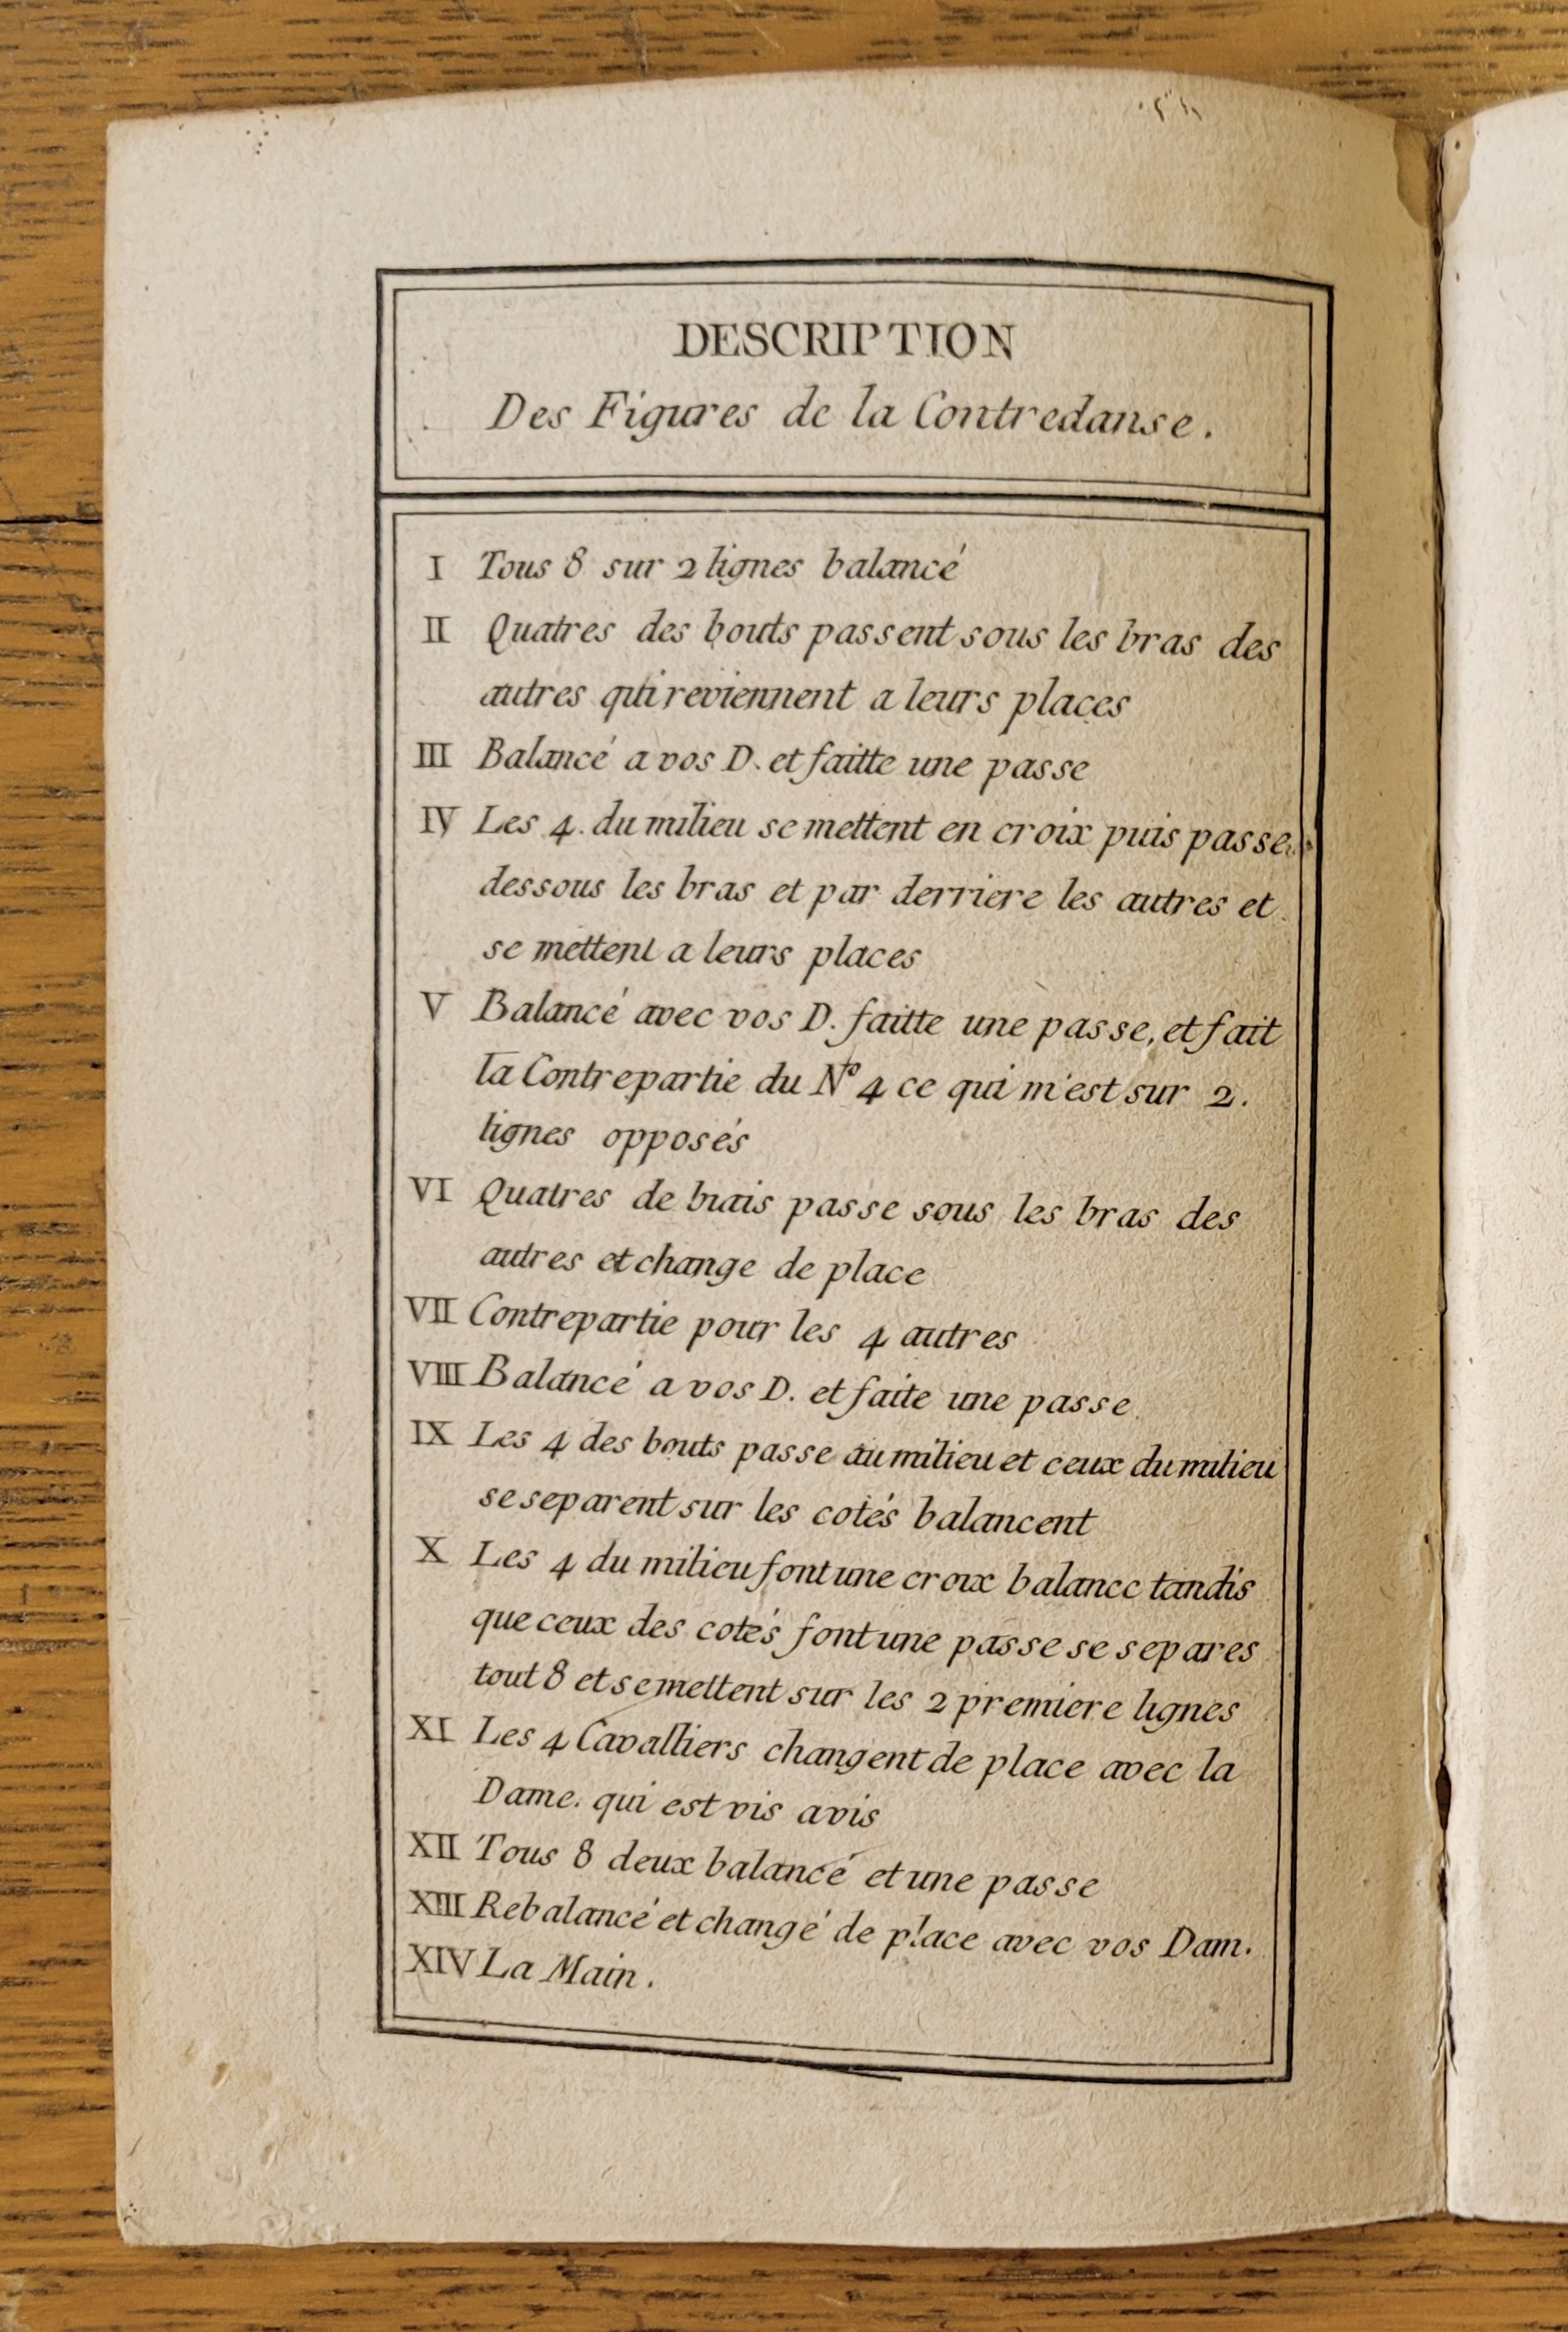 DESCRIPTION
Des Figures de la Contredanse.
I Tous 8 sur 2 lignes balancé
II Quatres des bouts passent sous les bras des
autres qui reviennent a leurs places
III Balancé a vos D. et faitte une passe
IV Les 4. du milieu se mettent en croix puis passe
dessous les bras et par derriere les autres et
se mettent a leurs places
V Balancé avec vos D. faitte une passe, et fait
la Contrepartie du No 4 ce qui m'est sur 2.
lignes opposés
VI Quatres de biais passe sous les bras des
autres et change de place
VII Contrepartie pour les 4 autres
VIII Balancé a vos D. et faite une passe
IX Les 4 des bouts passe au milieu et ceux du milieu
se separent sur les cotés balancent
X Les 4 du milieu font une croix balance tandis
que ceux des cotés font une passe se separes
tout 8 et se mettent sur les 2 premiere lignes
XI Les 4 Cavalliers changent de place avec la
Dame. qui est vis avis
XII Tous 8 deux balancé et une passe
XIII Rebalancé et changé de place avec vos Dam.
XIV La Main.